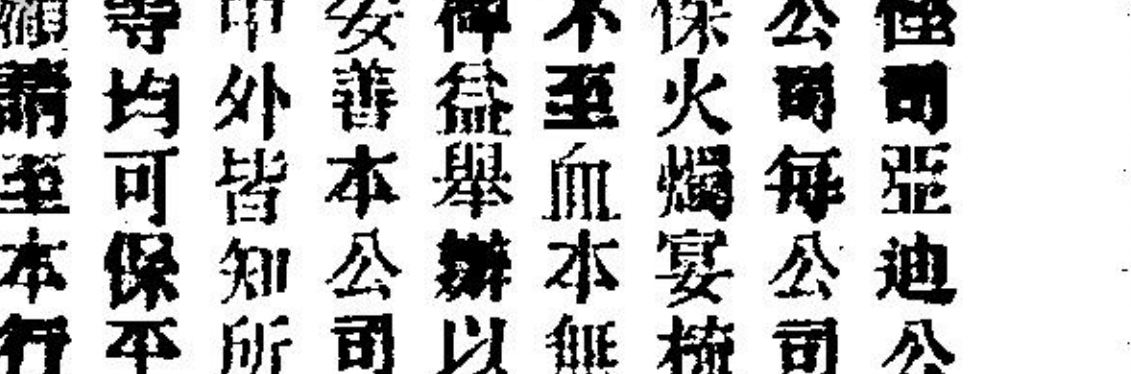 司亞迪公
公司每公司
保火燭宴梳
不至血本無
神益舉辦以
安善本公司
中外皆知所
等均可保平
請至本行